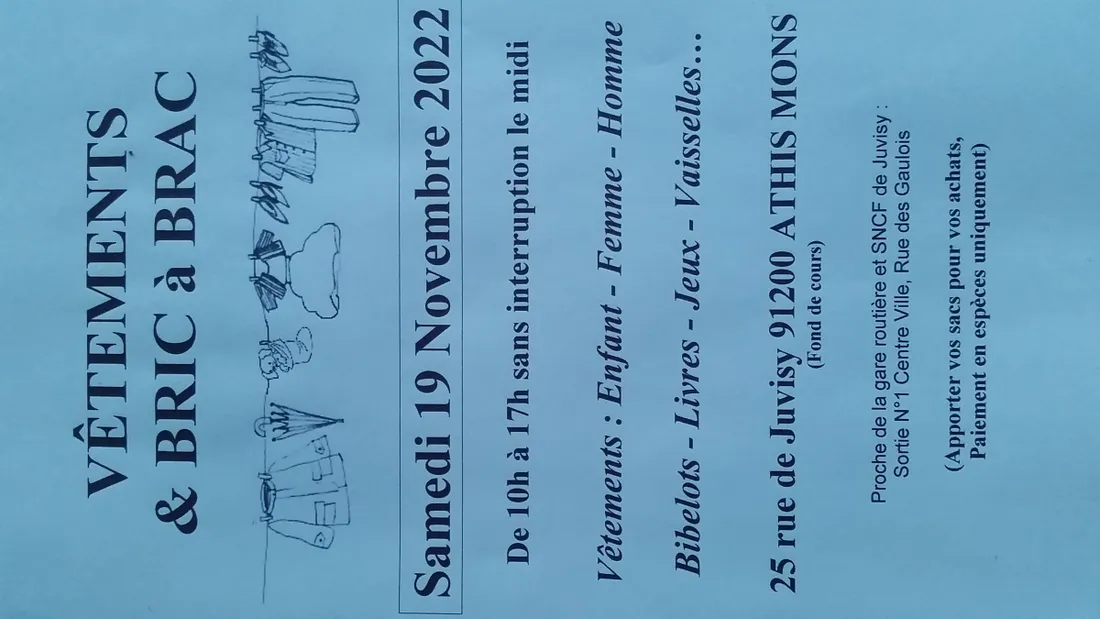 VÊTEMENTS
& BRIC à BRAC
Samedi 19 Novembre 2022
De 10h à 17h sans interruption le midi
Vêtements : Enfant - Femme - Homme
Bibelots - Livres - Jeux - Vaisselles…
25 rue de Juvisy 91200 ATHIS MONS
(Fond de cours)
Proche de la gare routière et SNCF de Juvisy :
Sortie N°1 Centre Ville, Rue des Gaulois
(Apporter vos sacs pour vos achats,
Paiement en espèces uniquement)